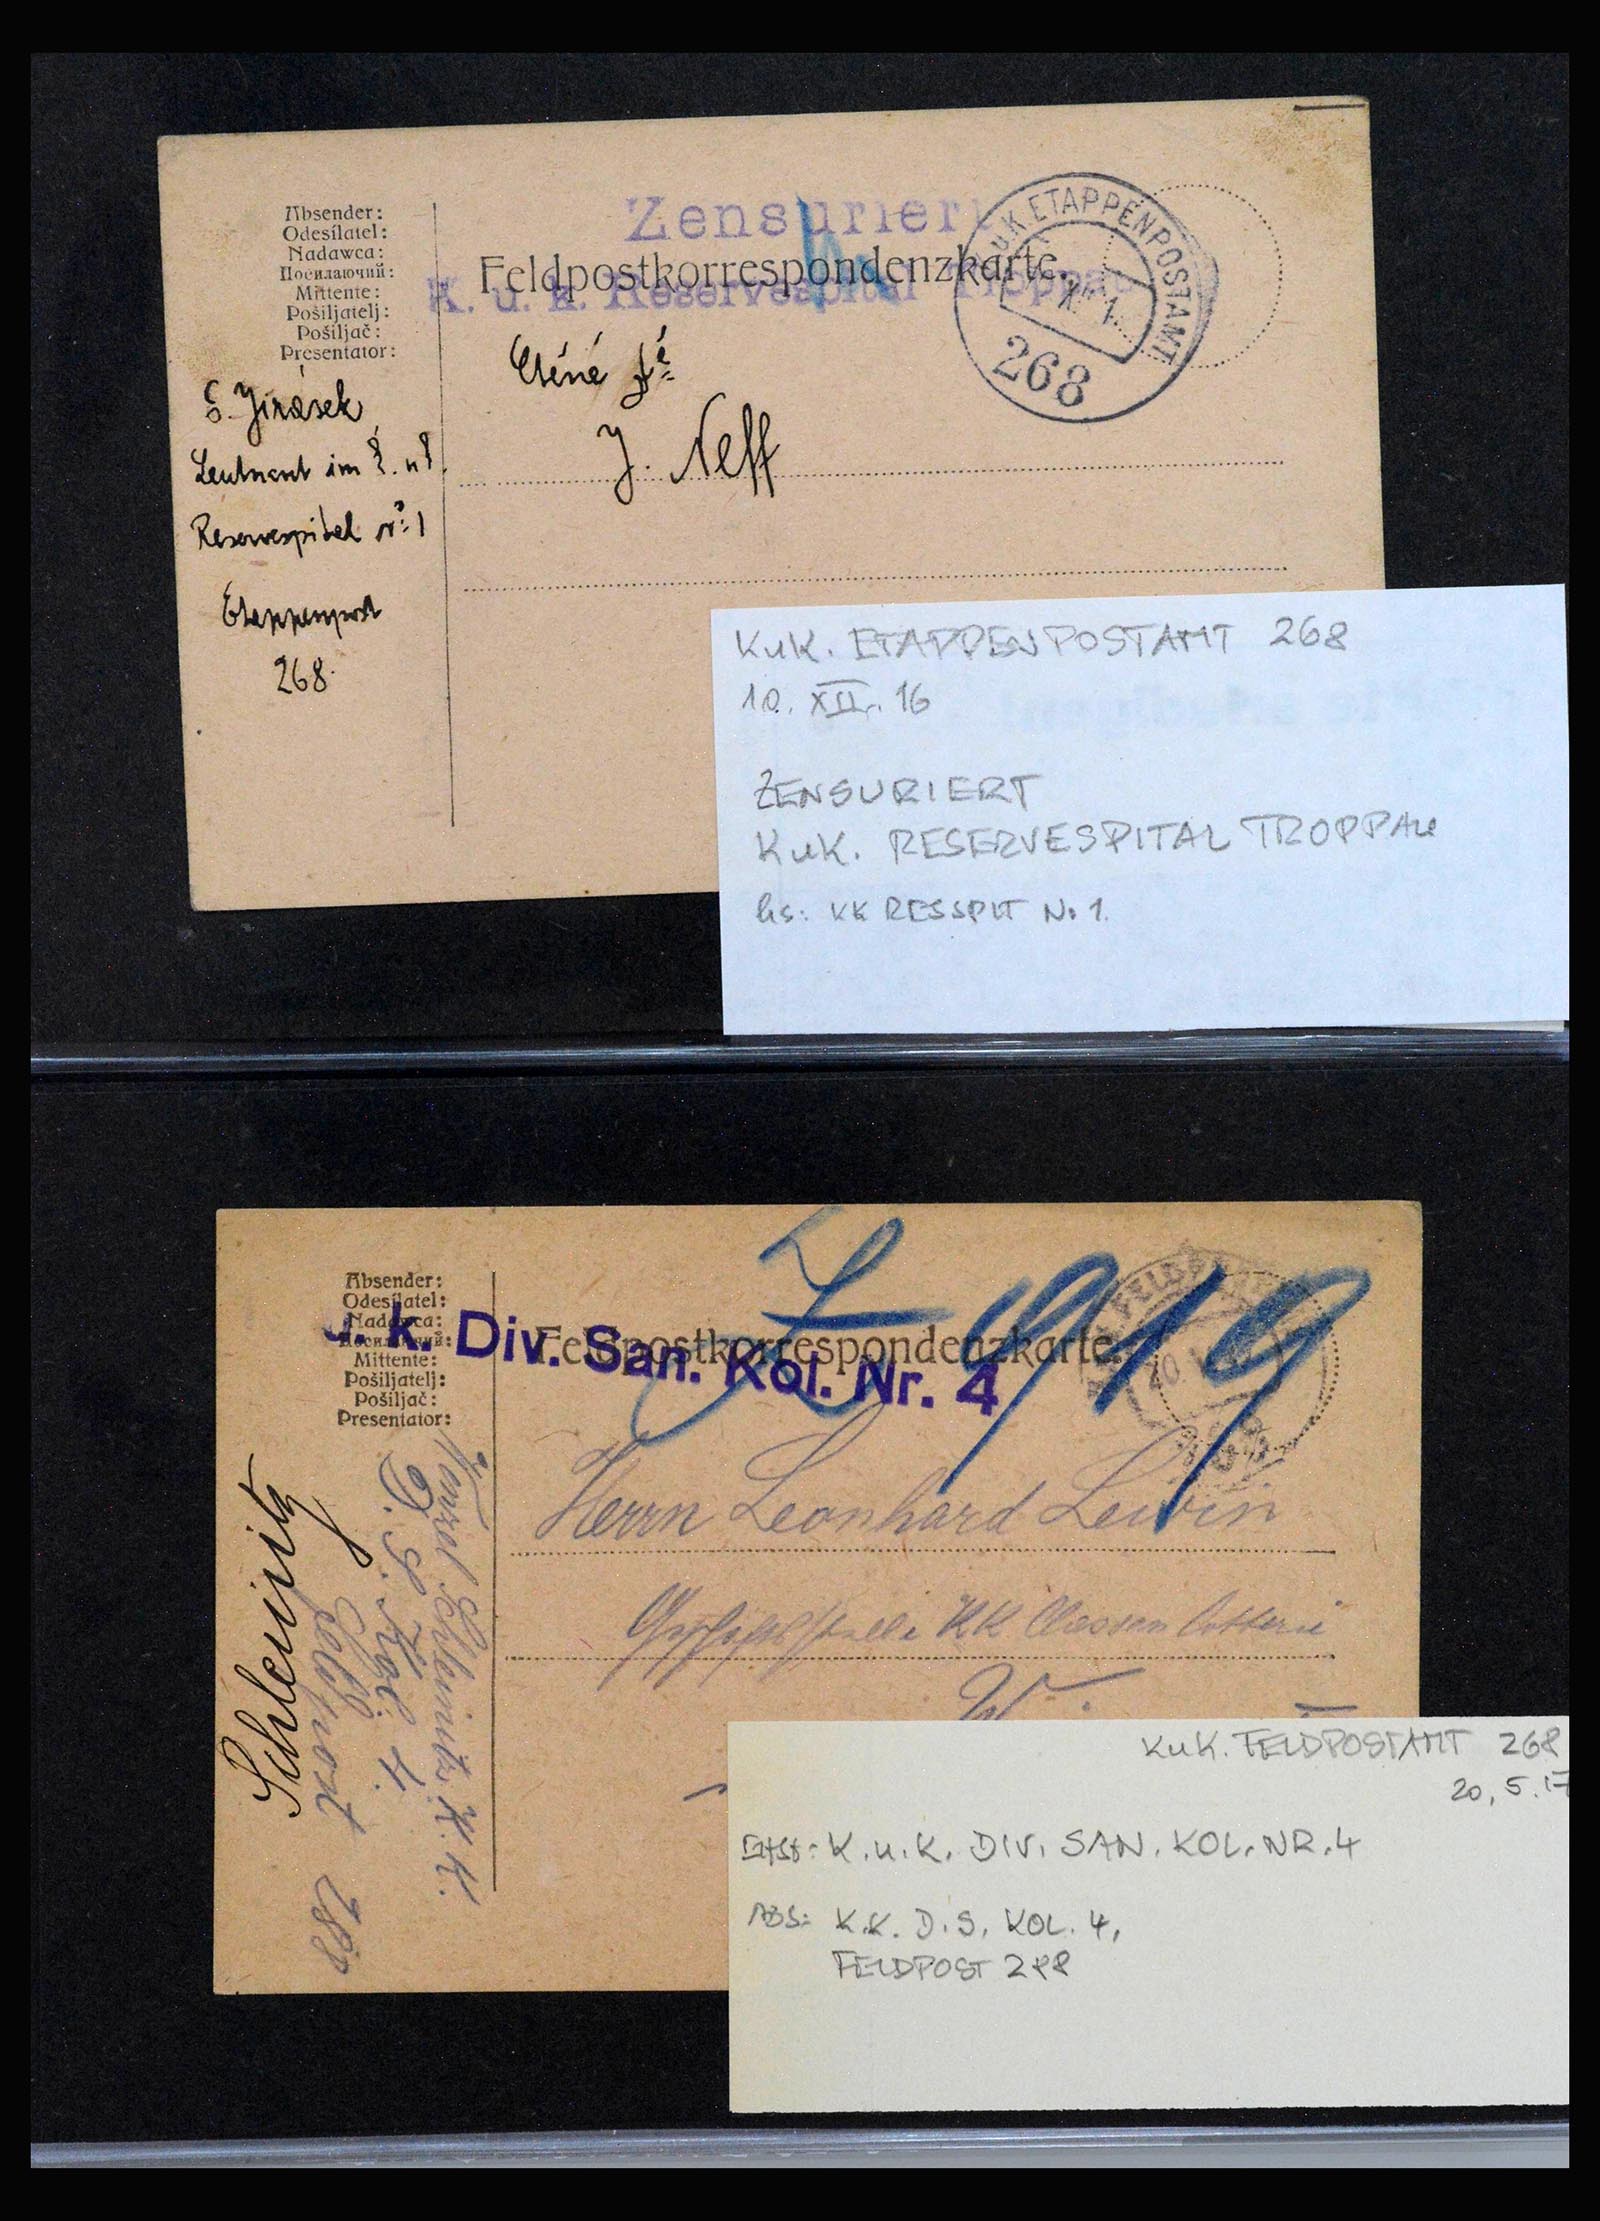 Absender:
Odesílatel:
Nadawca:
Посилаючий:
Mittente:
Pošiljatelj:
Pošiljač:
Presentator:
Zensuriert
Feldpostkorrespondenzkarte.
K. u. k. Reservespital Troppau
K.u.K. ETAPPENPOSTAMT
268
Ctěné
J. Neff
Š. Jirásek
Leutnant im
Reservespital No 1
Etappenpost
268.
KuK. ETAPPENPOSTAMT 268
10. XII. 16
ZENSURIERT
KuK. RESERVESPITAL TROPPAU
hs: KK RESSPIT No 1.
Absender:
Odesílatel:
Nadawca:
Посилаючий:
Mittente:
Pošiljatelj:
Pošiljač:
Presentator:
u. k. Div. San. Kol. Nr. 4
Feldpostkorrespondenzkarte.
919
Herrn Leonhard Lewin
Geschäftsstelle KK Classen Lotterie
Schleinitz
Schleinitz K. K.
D. S. Kol. 4.
Feldpost 288
KuK. FELDPOSTAMT 268
20. 5. 17
K.u.K. DIV. SAN. KOL. NR. 4
ABS: K.K. D.S. KOL. 4,
FELDPOST 288